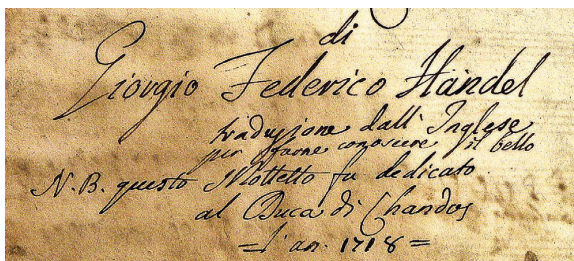 di
Giorgio Federico Händel
traduzione dall' Inglese
per farne conoscere il bello
N.B. questo Mottetto fu dedicato
al Duca di Chandos
= l' an. 1718 =